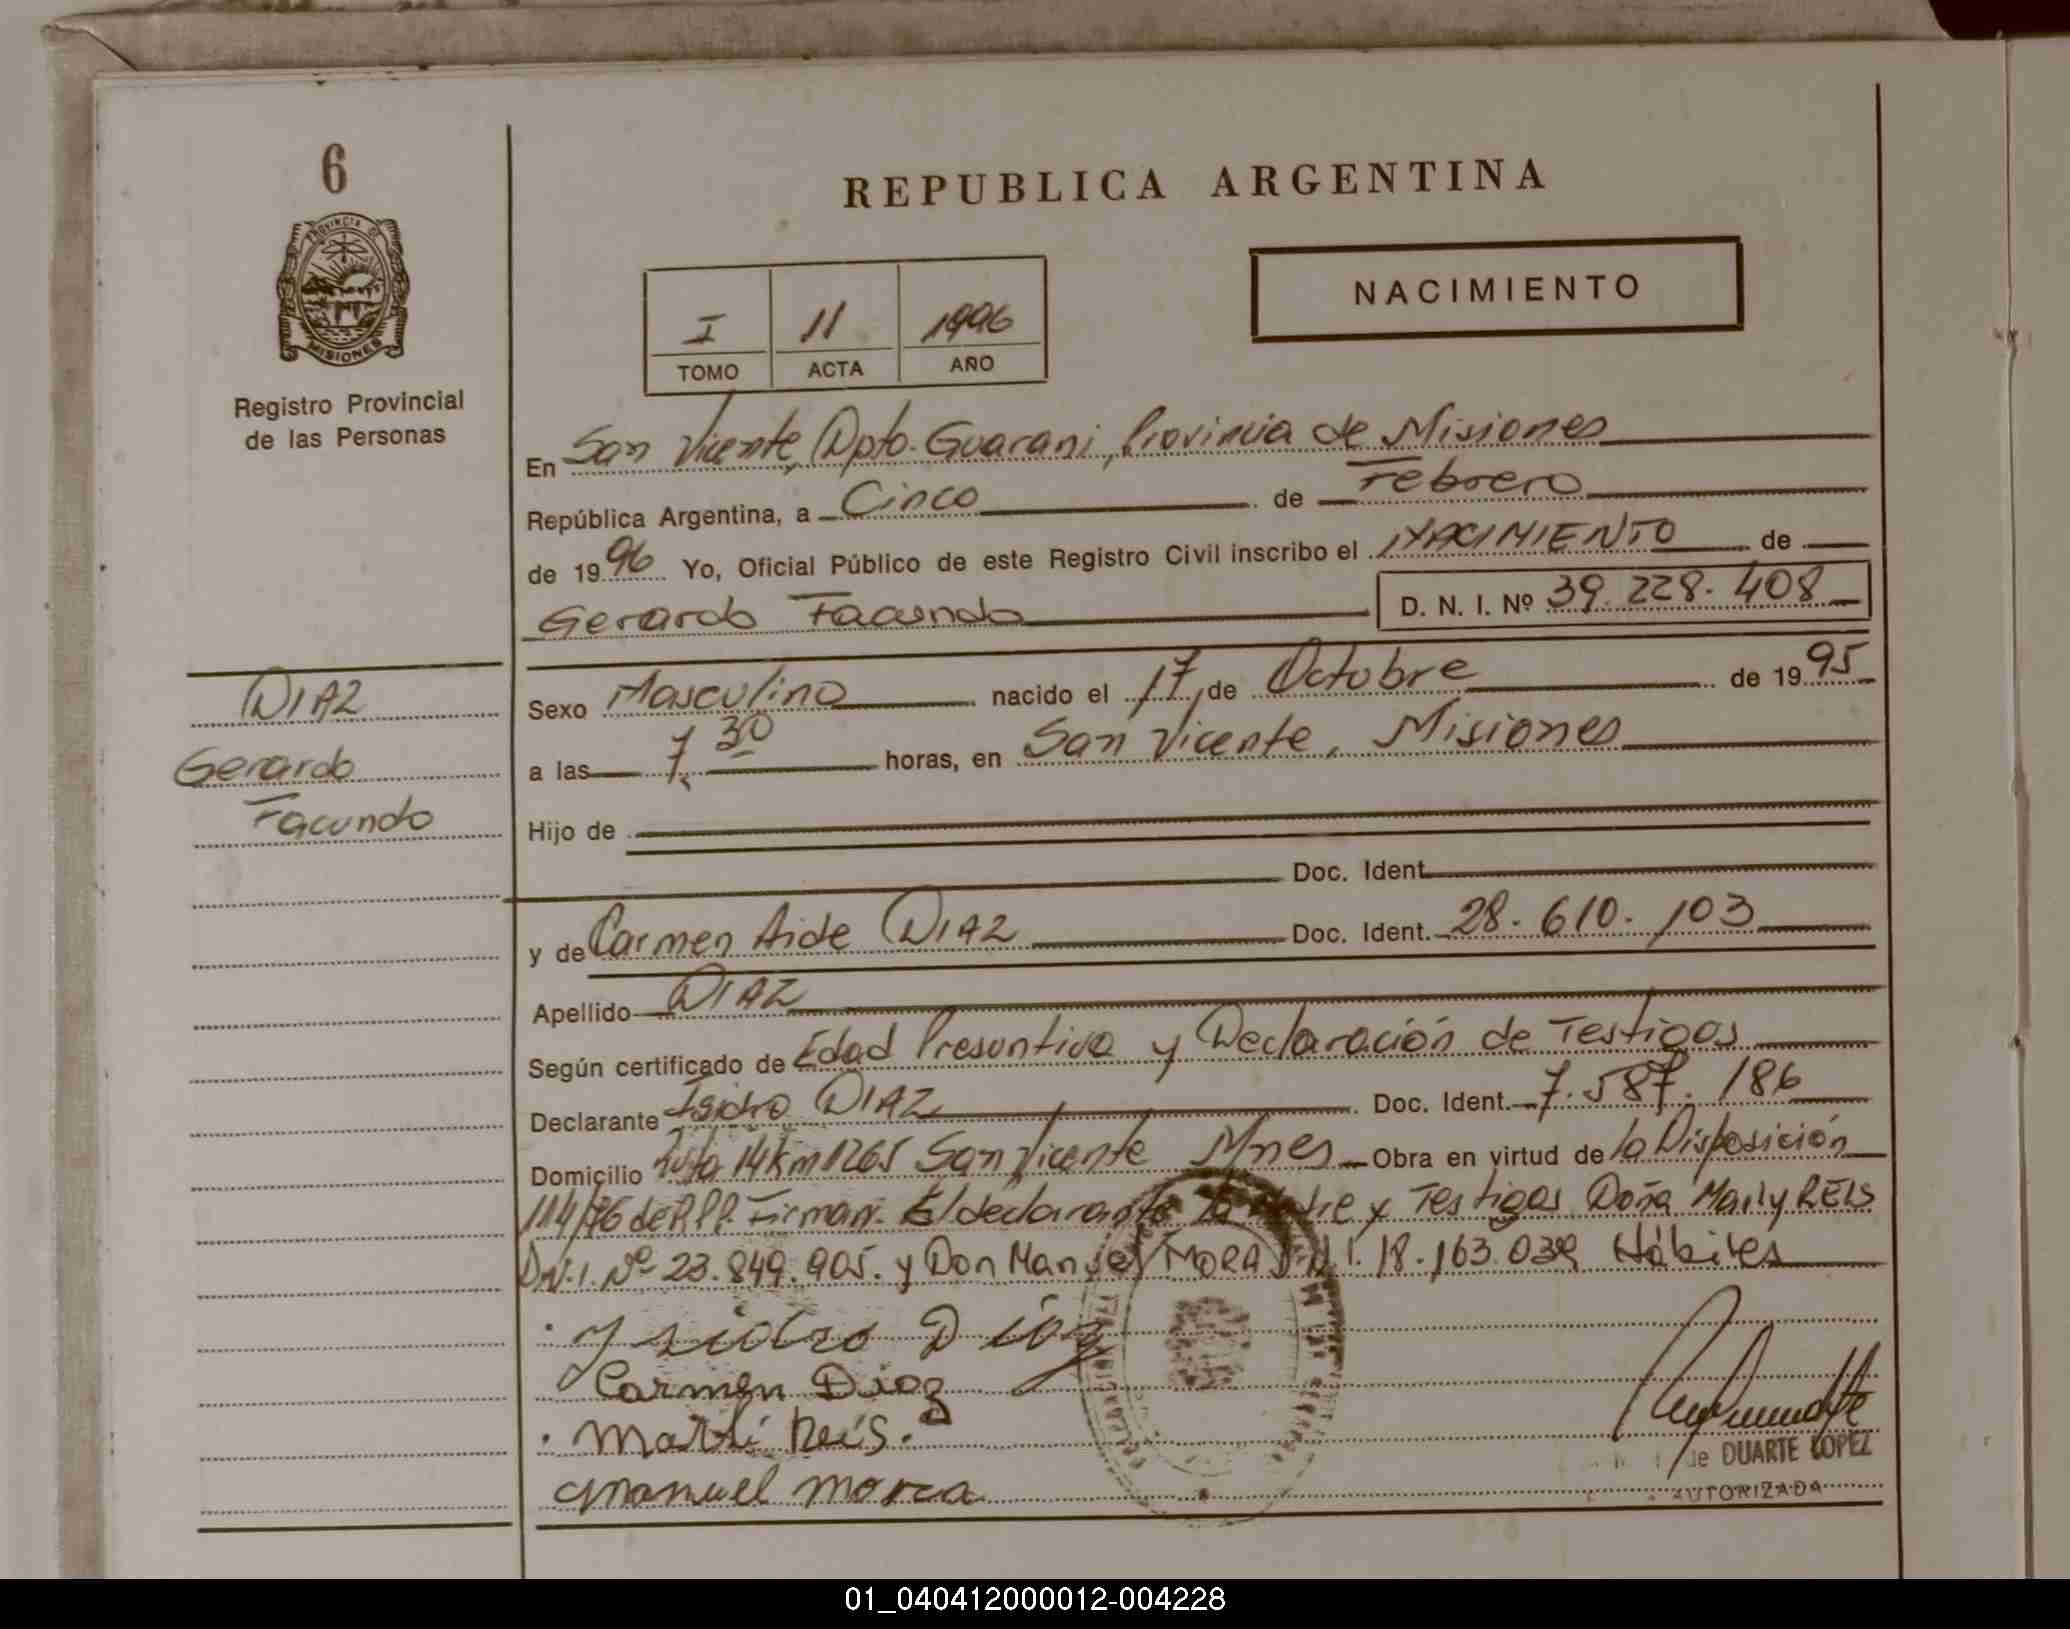 6
PROVINCIA DE
MISIONES
Registro Provincial
de las Personas
REPUBLICA ARGENTINA
NACIMIENTO
I 11 1996
TOMO ACTA AÑO
En San Vicente, Dpto. Guarani, Provincia de Misiones
República Argentina, a Cinco de Febrero
de 1996 Yo, Oficial Público de este Registro Civil inscribo el NACIMIENTO de
Gerardo Facundo D. N. I. Nº 39.228.408
DIAZ
Gerardo
Facundo
Sexo Masculino nacido el 17 de Octubre de 1995
a las 7,30 horas, en San Vicente, Misiones
Hijo de
Doc. Ident.
y de Carmen Aide DIAZ Doc. Ident. 28.610.103
Apellido DIAZ
Según certificado de Edad Presuntiva y Declaración de Testigos
Declarante Isidro DIAZ Doc. Ident. 7.587.186
Domicilio Ruta 14 Km 1265 San Vicente Mnes Obra en virtud de la Disposición
114/76 de R.P.P. Firman: El declarante la Madre y Testigos Doña Marly REIS
D.N.I. Nº 23.849.905. y Don Manuel MORA D.N.I. 18.163.039 Hábiles
Isidro Díaz
Carmen Diaz
Marli Reis.
Manuel Mora
de DUARTE LOPEZ
AUTORIZADA
01_040412000012-004228